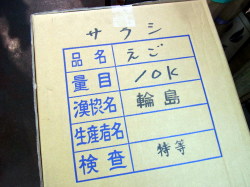 サラシ
品名 えご
量目 10K
漁協名 輪島
生産者名
検査 特等